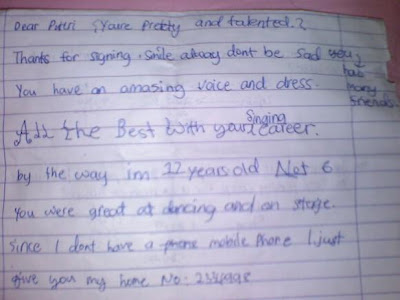 Dear Putri ; Youre pretty and talented.?
Thanks for signing . Smile alway dont be sad you
have
many
friends.
You have an amasing voice and dress.
All the Best with your singing career.
by the way im 22 years old Not 6
You were great at dancing and on stage.
Since I dont have a phone mobile Phone I just
give you my home No: 2334998